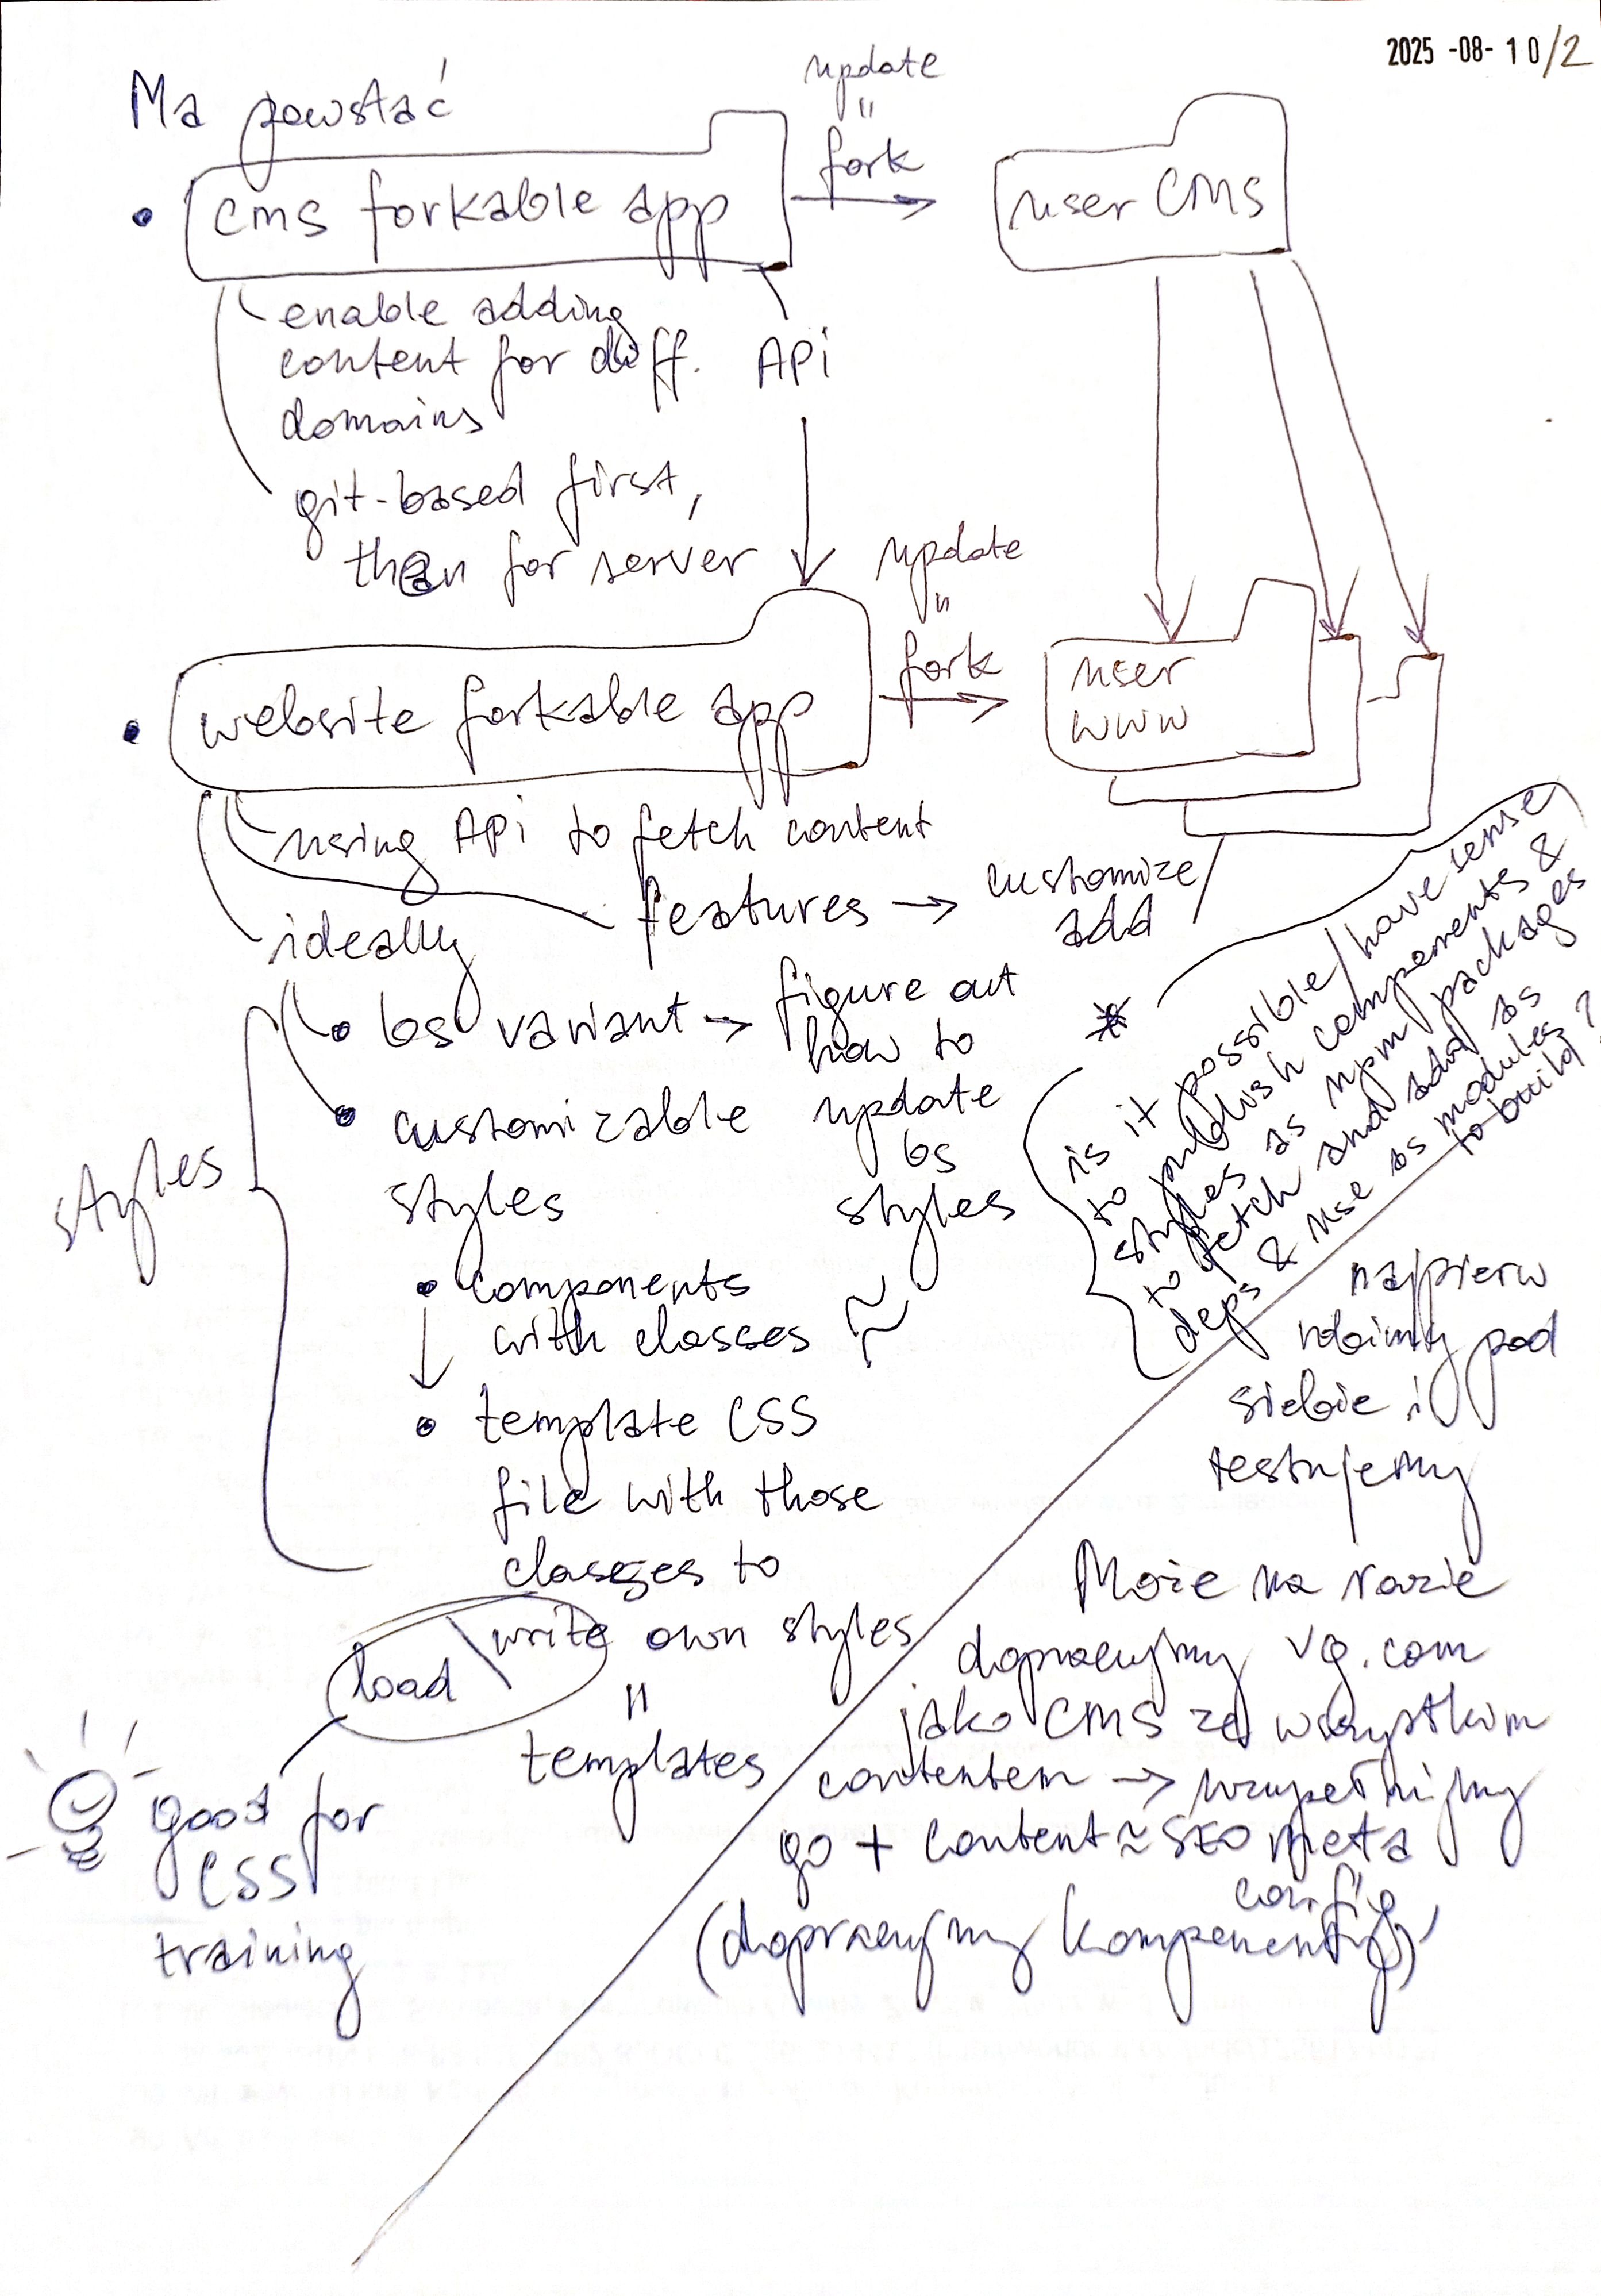 2025 -08- 10/2
Ma powstać
update
"
fork
• cms forkable app
user CMS
enable adding
content for diff.
domains
API
git-based first,
then for server
update
"
fork
• website forkable app
user
www
using API to fetch content
features → customize
add
ideally
• bs variant → figure out
how to
update
bs
styles
• customizable
styles
styles
• components
with classes
• template CSS
file with those
classes to
load \ write own styles
"
templates
good for
CSS
training
*
is it possible / have sense
to publish components &
styles as npm packages
to fetch and add as
deps & use as modules
to build?
najpierw
róbimy pod
siebie i
testujemy
Może na razie
dopracujmy vg.com
jako CMS ze wszystkim
contentem → uzupełnijmy
go + content ≈ SEO meta
config
(dopracujmy komponenty)